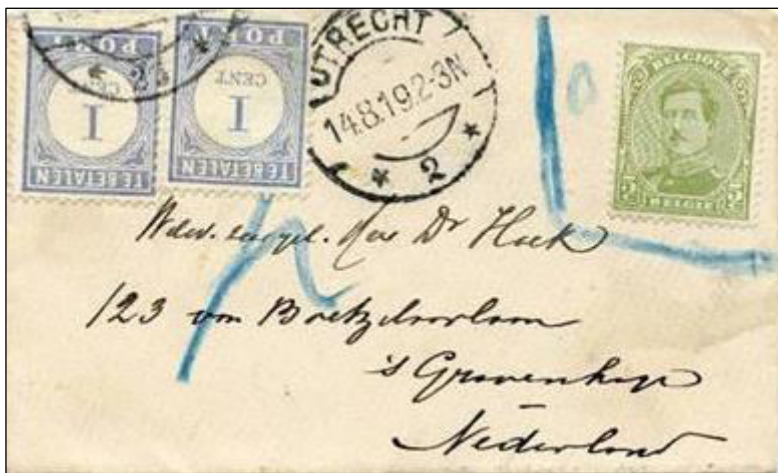 PORT
CENT
1
TE BETALEN
PORT
CENT
1
TE BETALEN
2
UTRECHT
14.8.19.2-3N
2
BELGIQUE
5 5
BELGIË
Dr Hoek
123 van Boetzelaerlaan
's Gravenhage
Nederland